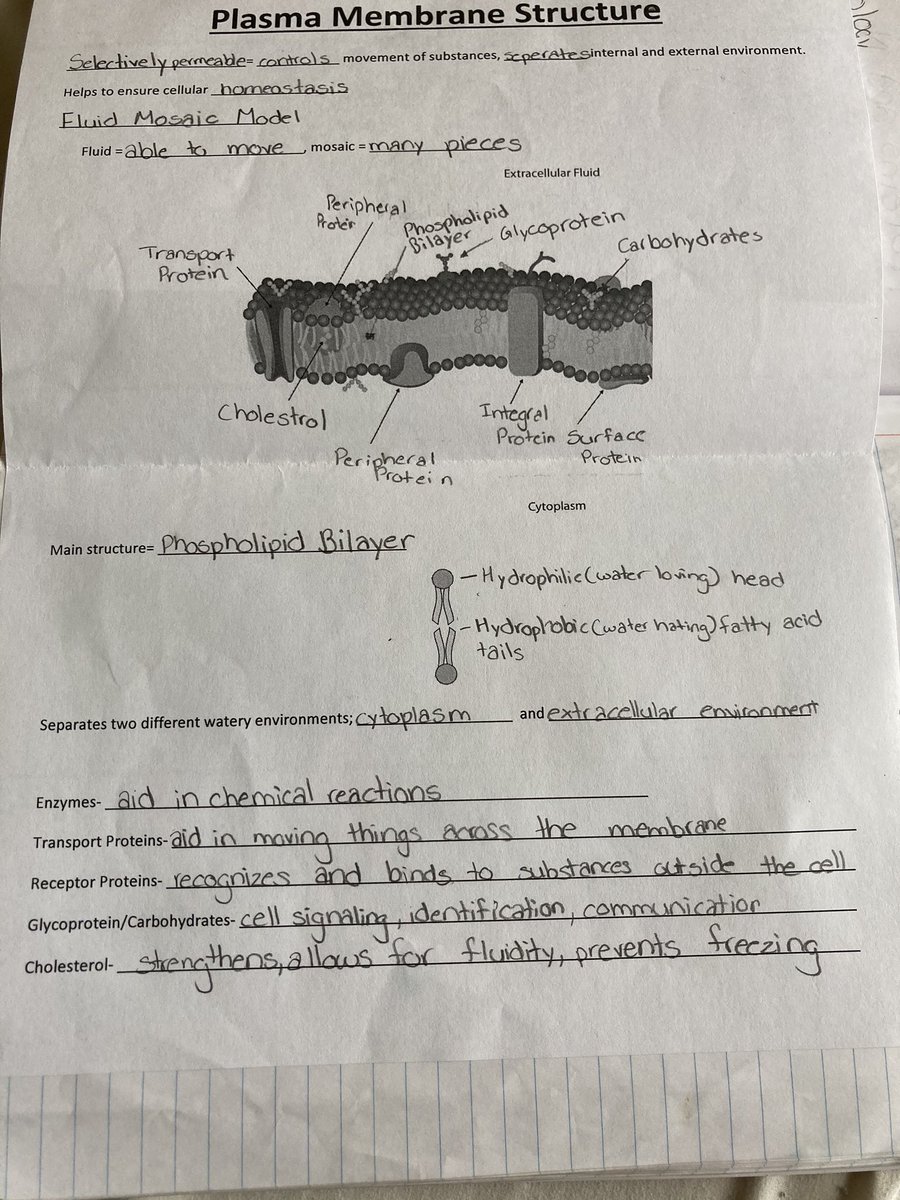 Plasma Membrane Structure
Selectively permeable= controls movement of substances, seperates internal and external environment.
Helps to ensure cellular homeostasis
Fluid Mosaic Model
Fluid = able to move, mosaic = many pieces
Extracellular Fluid
Peripheral
Protein
Phospholipid
Bilayer
Glycoprotein
Carbohydrates
Transport
Protein
Cholestrol
Peripheral
Protein
Integral
Protein
Surface
Protein
Cytoplasm
Main structure= Phospholipid Bilayer
-Hydrophilic (water loving) head
-Hydrophobic (water hating) fatty acid
tails
Separates two different watery environments; cytoplasm and extracellular environment
Enzymes- aid in chemical reactions
Transport Proteins- aid in moving things across the membrane
Receptor Proteins- recognizes and binds to substances outside the cell
Glycoprotein/Carbohydrates- cell signaling, identification, communication
Cholesterol- strengthens, allows for fluidity, prevents freezing